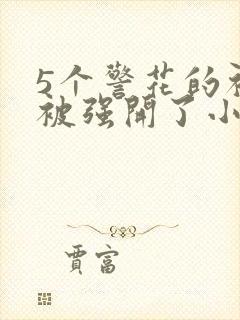 5个警花的
被强開了小
賈富